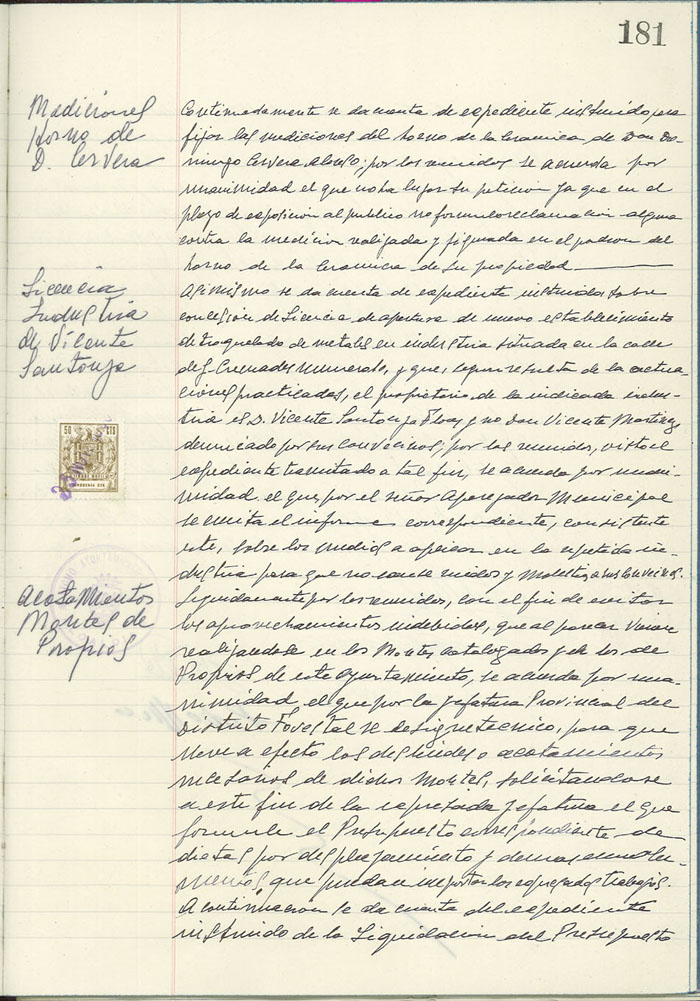 181
Mediciones
Horno de
D. Cervera
Continuadamente se da cuenta de expediente instruido para
fijar las mediciones del horno de la Ceramica de Don Do-
mingo Cervera Alonso; por los reunidos se acuerda por
unanimidad el que no ha lugar su peticion ya que en el
plazo de exposicion al publico no formulo reclamacion alguna
contra la medicion realizada y figurada en el padron del
horno de la Ceramica de su propiedad
Licencia
Industria
de Vicente
Santonja
Asimismo se da cuenta de expediente instruido sobre
concesion de Licencia de apertura de nuevo establecimiento
de troquelado de metales en industria situada en la calle
de numero, y que, segun resulta de la actua-
ciones practicadas, el propietario de la indicada indus-
tria es D. Vicente Santonja y no Don Vicente Martinez
denunciado por sus convecinos; por los reunidos, visto el
expediente tramitado a tal fin, se acuerda por unani-
midad el que por el señor Aparejador Municipal
se emita el informe correspondiente, consistente
este, sobre los medios a aplicar en la repetida in-
dustria para que no cause ruidos y molestias a sus convecinos.
50 CTS
Acotamientos
Montes de
Propios
Seguidamente por los reunidos, con el fin de evitar
los aprovechamientos indebidos, que al parecer vienen
realizandose en los Montes catalogados y de los de
Propios de este Ayuntamiento, se acuerda por una-
nimidad, el que por la Jefatura Provincial del
Distrito Forestal se designe tecnico, para que
lleve a efecto los deslindes o acotamientos
necesarios de dichos Montes, solicitandose
a este fin de la expresada Jefatura el que
formule el Presupuesto correspondiente de
dietas por desplazamiento y demas emolu-
mentos, que puedan importar los expresados trabajos.
A continuacion se da cuenta del expediente
instruido de la Liquidacion del Presupuesto